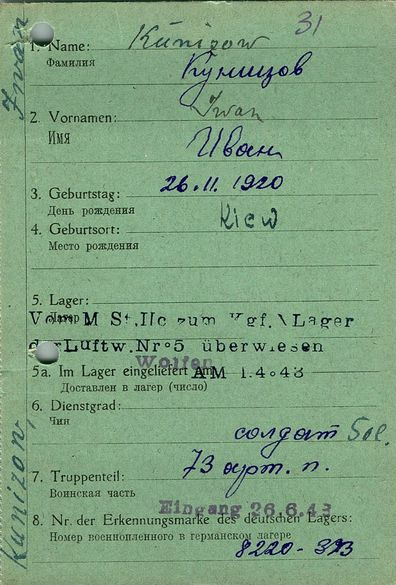 31
1. Name: Künizow
Фамилия
Куницов
2. Vornamen: Iwan
ИМЯ
Иван
3. Geburtstag: 26.11.1920
День рождения
4. Geburtsort: Kiew
Место рождения
5. Lager:
Лагер
Vom M St. IIc zum Kgf. Lager
der Luftw. Nr 5 überwiesen
Wolfen
5a. Im Lager eingeliefert am AM 1.4.43
Доставлен в лагер (число)
6. Dienstgrad:
Чин
солдат Sol.
7. Truppenteil: 73 арт. п.
Воинская часть
Eingang 26.6.43
8. Nr. der Erkennungsmarke des deutschen Lagers:
Номер военнопленного в германском лагере
8220-
Kunizov, Iwan